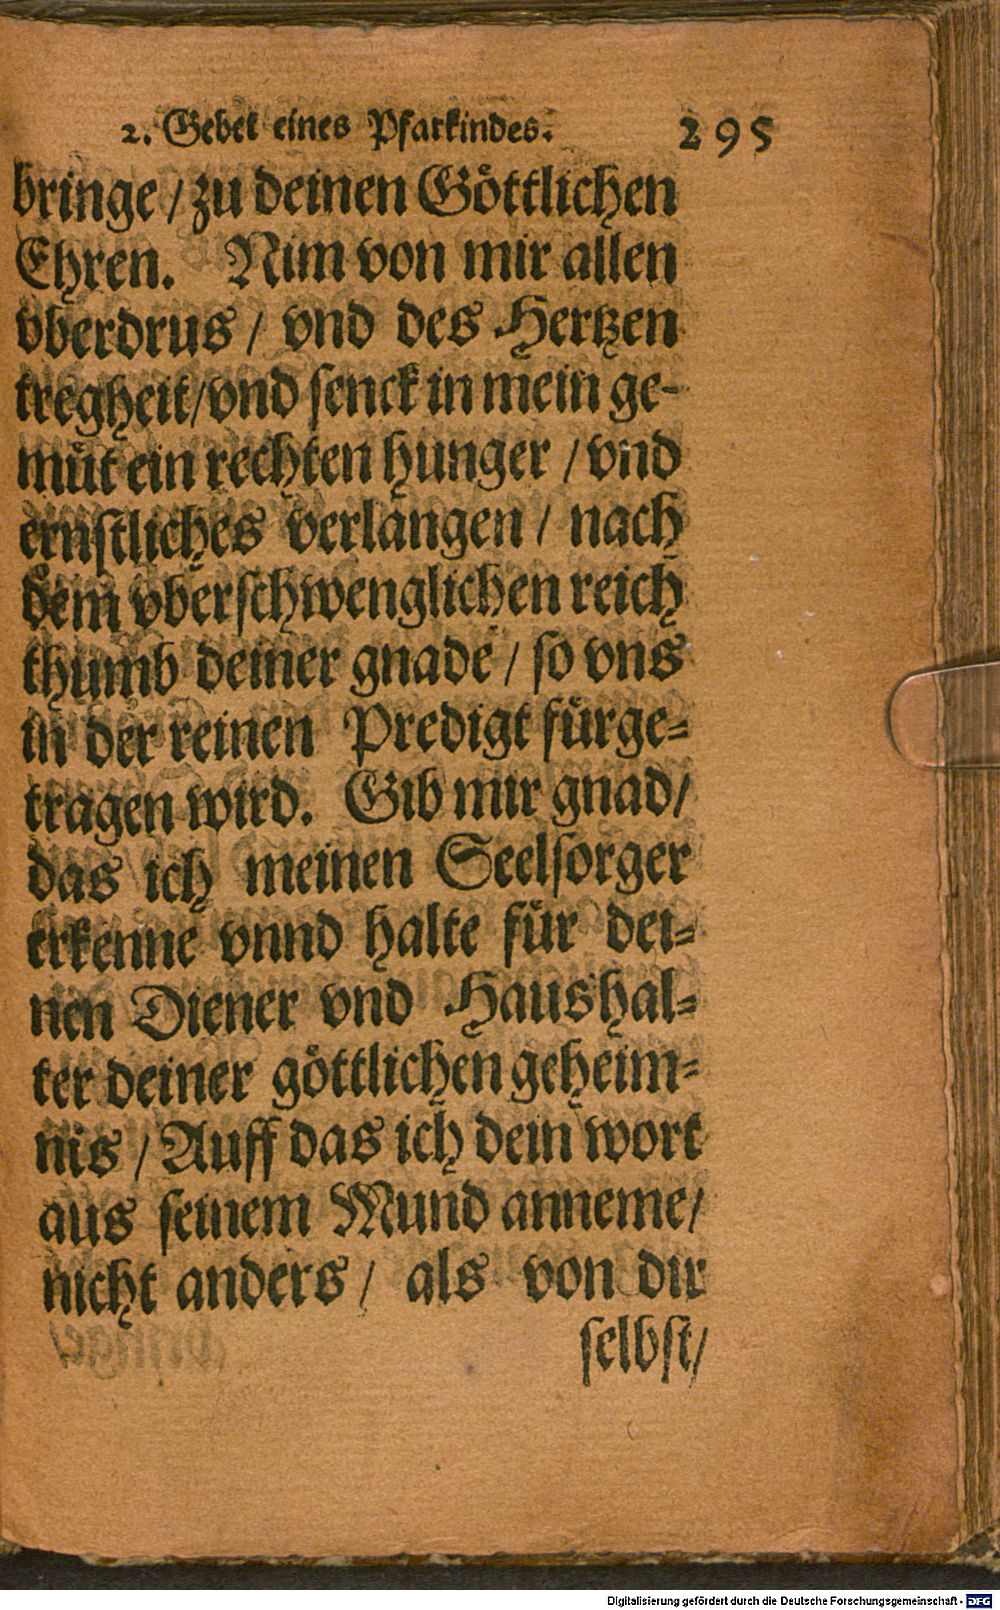 2. Gebet eines Pfarkindes. 295
bringe / zu deinen Göttlichen
Ehren. Nim von mir allen
vberdrus / vnd des Hertzen
tregheit / vnd senck in mein ge-
müt ein rechten hunger / vnd
ernstliches verlangen / nach
dem vberschwenglichen reich
thumb deiner gnade / so vns
in der reinen Predigt fürge-
tragen wird. Gib mir gnad /
das ich meinen Seelsorger
erkenne vnnd halte für dei-
nen Diener vnd Haushal-
ter deiner göttlichen geheim-
nis / Auff das ich dein wort
aus seinem Mund anneme /
nicht anders / als von dir
selbst /
Digitalisierung gefördert durch die Deutsche Forschungsgemeinschaft - DFG